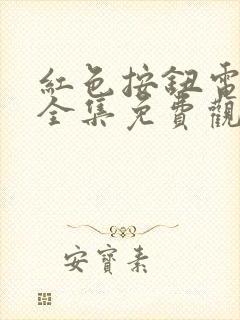 紅色按鈕電
全集免費觀
安寶素